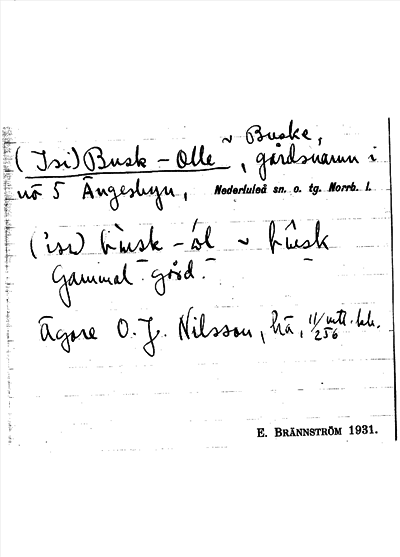 ~ Buske,
(Isi) Busk-Olle, gårdsnamn i
nö 5 Ängesbyn, Nederluleå sn. o. tg. Norrb. l.
('isi) busk-ól ~ bûsk
Gammal gård.
Ägare O. J. Nilsson, hä, 11/256 mtl.
E. BRÄNNSTRÖM 1931.